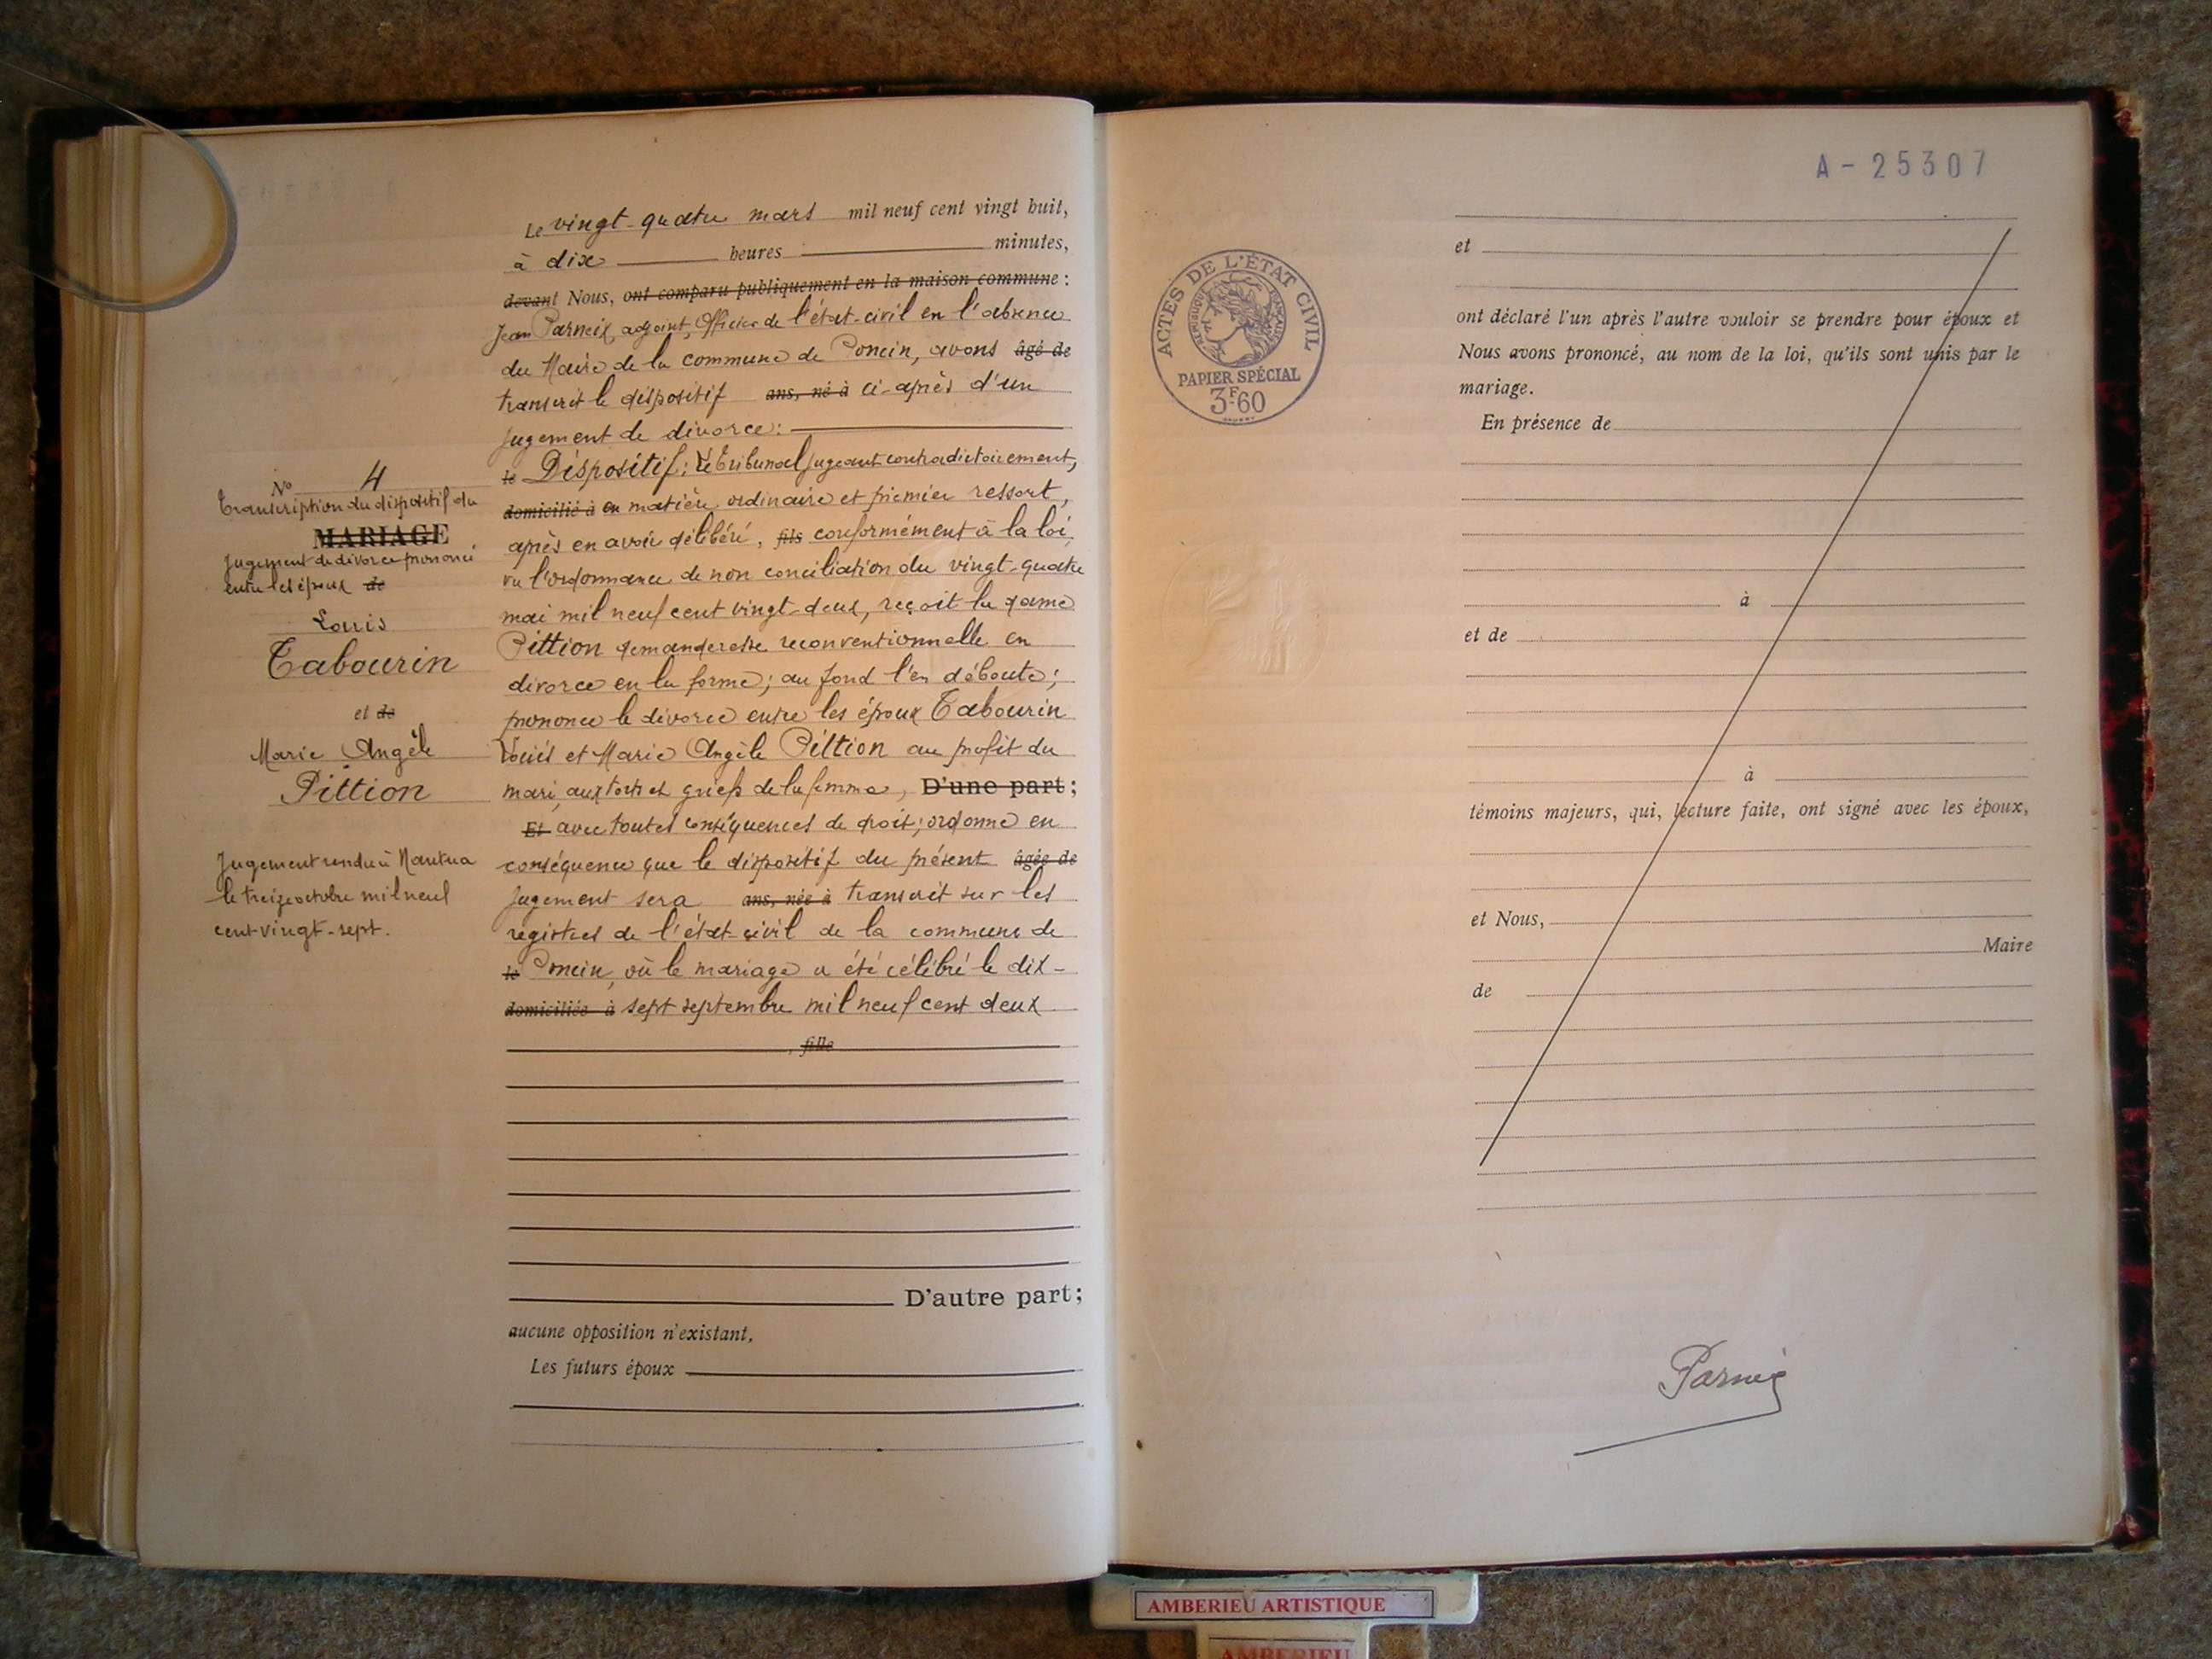 Le vingt-quatre mars mil neuf cent vingt huit,
à dix heures minutes,
devant Nous, ont comparu publiquement en la maison commune :
Jean Parneix, adjoint, Officier de l'état-civil en l'absence
du Maire de la commune de Poncin, avons âgé de
transcrit le dispositif ans, né à ci-après d'un
jugement de divorce :
le Dispositif : Le tribunal jugeant contradictoirement,
domicilié à en matière ordinaire et premier ressort,
après en avoir délibéré, fils conformément à la loi,
vu l'ordonnance de non conciliation du vingt-quatre
mai mil neuf cent vingt-deux, reçoit la dame
Pittion demanderesse reconventionnelle en
divorce en la forme ; au fond l'en déboute ;
prononce le divorce entre les époux Tabourin
Louis et Marie Angèle Pittion au profit du
mari, aux torts et griefs de la femme, D'une part ;
Et avec toutes conséquences de droit ; ordonne en
conséquence que le dispositif du présent âgée de
jugement sera ans, née à transcrit sur les
registres de l'état-civil de la commune de
le Poncin, où le mariage a été célébré le dix-
domiciliée à sept septembre mil neuf cent deux
, fille
D'autre part ;
aucune opposition n'existant,
Les futurs époux
N° 4
Transcription du dispositif du
MARIAGE
Jugement de divorce prononcé
entre les époux de
Louis
Tabourin
et de
Marie Angèle
Pittion
Jugement rendu à Nantua
le treize octobre mil neuf
cent vingt-sept.
A-25307
ACTES DE L'ÉTAT CIVIL
RÉPUBLIQUE FRANÇAISE
PAPIER SPÉCIAL
3F60
et
ont déclaré l'un après l'autre vouloir se prendre pour époux et
Nous avons prononcé, au nom de la loi, qu'ils sont unis par le
mariage.
En présence de
à
et de
à
témoins majeurs, qui, lecture faite, ont signé avec les époux,
et Nous,
Maire
de
Parneix
AMBERIEU ARTISTIQUE
AMBERIEU